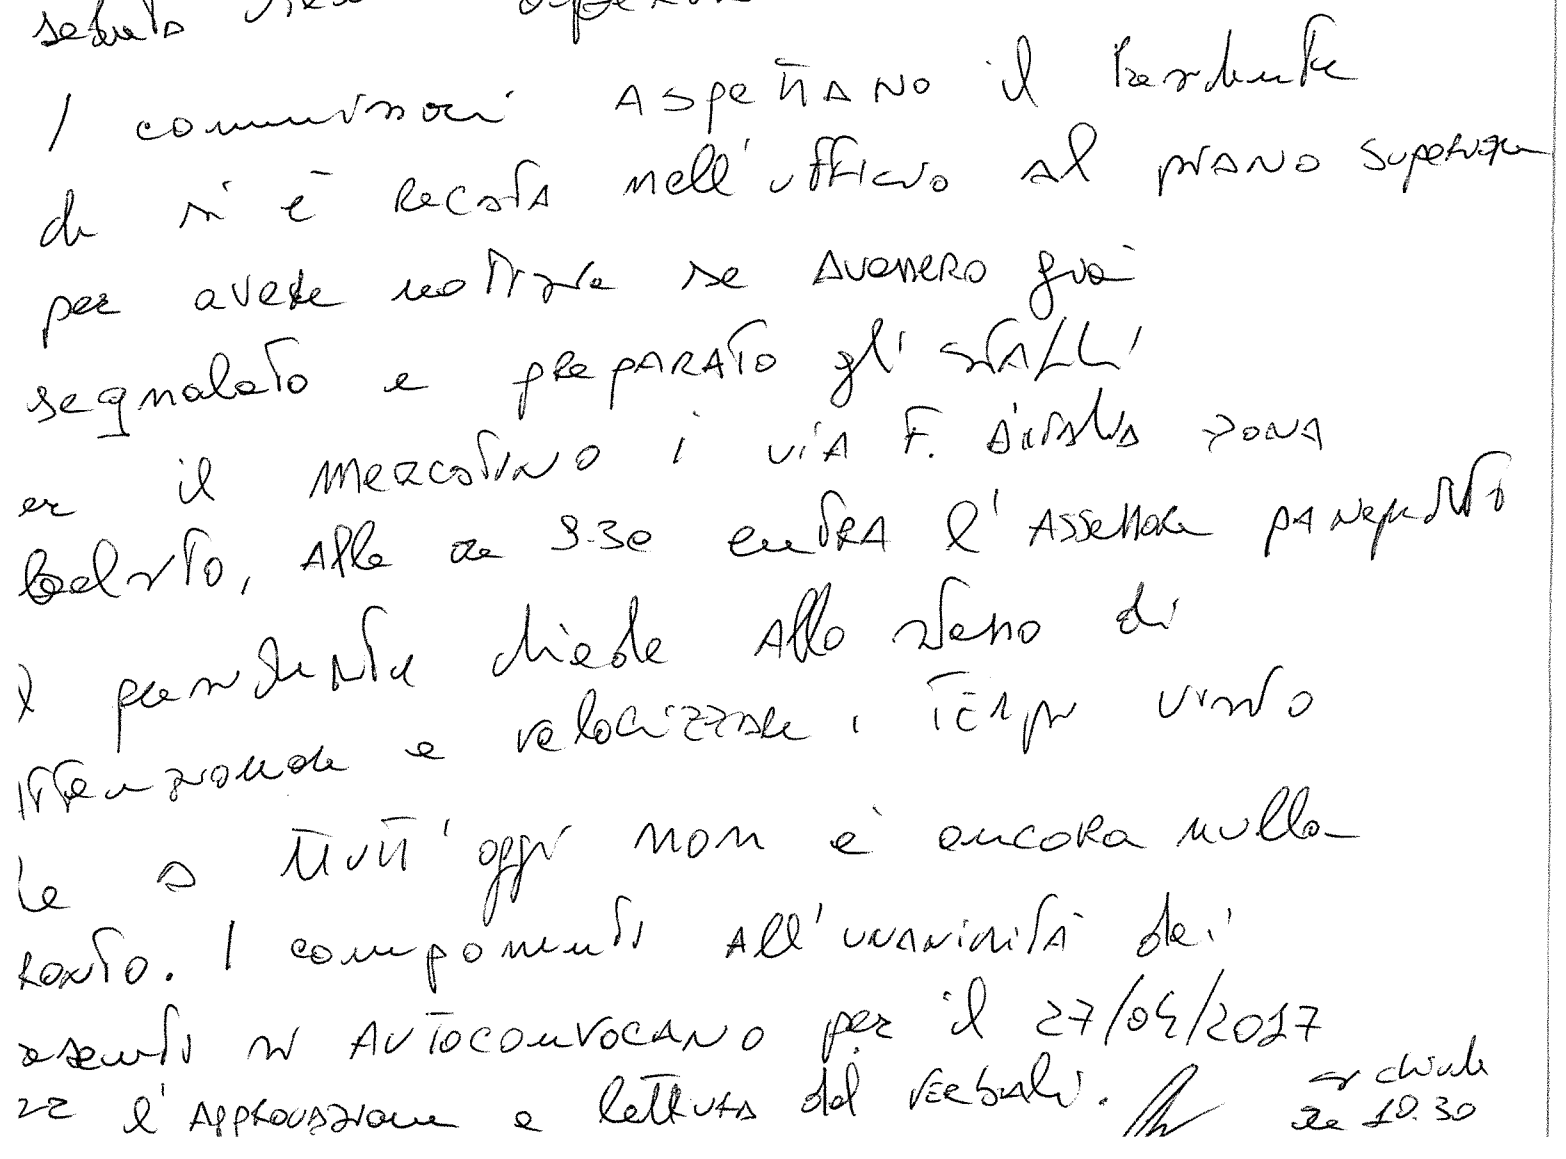 seduta viene
I commissari ASpettANO il Presidente
che si è RecatA nell'ufficio al piANO SupeRiore
per avere notizie se AvesseRO già
segnalato e prepARATO gli stALLi
er il meRcatiNO i viA F. d'itAliA zONA
, Alle ore 9.30 entRA l'ASSessore pANepinto
l presidente chiede Allo stesso di
ttenzionare e velocizzare i TEMpi visto
he a tutt'oggi non è ancoRa nulla
RONtO. I componenti All'uNANiMità dei
resenti si AUTOCONVOCANO per il 27/04/2017
l'AppROvAzione e lettuRA del veRbali.
si chiude
ore 10.30